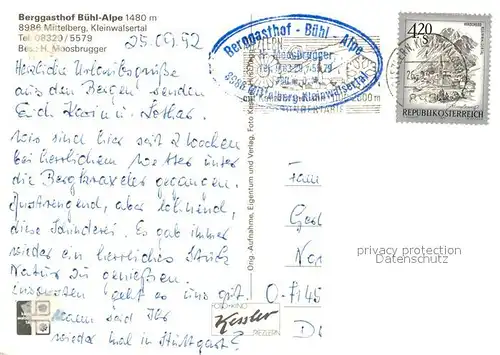 Berggasthof Bühl-Alpe 1480 m
8986 Mittelberg, Kleinwalsertal
Tel. 08329/5579
Bes. H. Moosbrugger
25.09.92
Herzliche Urlaubsgrüße
aus den Bergen senden
Euch Karin u. Lothar.
Wir sind hier seit 2 Wochen
bei herrlichem Wetter unter
die Bergkraxler gegangen.
Anstrengend, aber lohnend,
diese Schinderei. Es gab immer
wieder ein herrliches Stück
Natur zu genießen.
Ansonsten geht es uns gut.
Wann seid Ihr
wieder mal in Stuttgart?
Berggasthof - Bühl - Alpe
H. Moosbrugger
Tel. 08329/5579
8986 Mittelberg-Kleinwalsertal
4.20
S
REPUBLIK ÖSTERREICH
Orig.-Aufnahme, Eigentum und Verlag, Foto
FOTO-KINO
Kessler
RIEZLERN
Fam
Gar
No
D-7145
privacy protection
Datenschutz